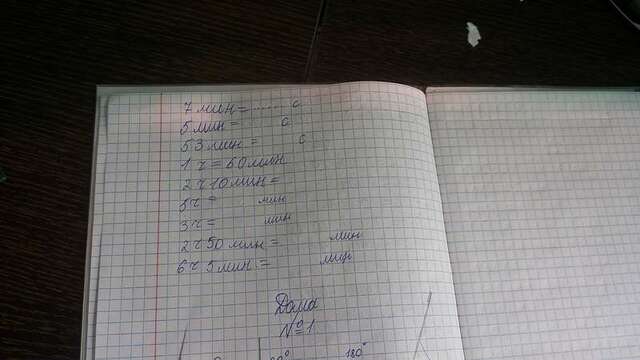 7 мин = ...... с
5 мин = с
53 мин = с
1 ч = 60 мин
2 ч 10 мин =
5 ч = мин
3 ч = мин
2 ч 50 мин = мин
6 ч 5 мин = мин
Дома
№1
120°